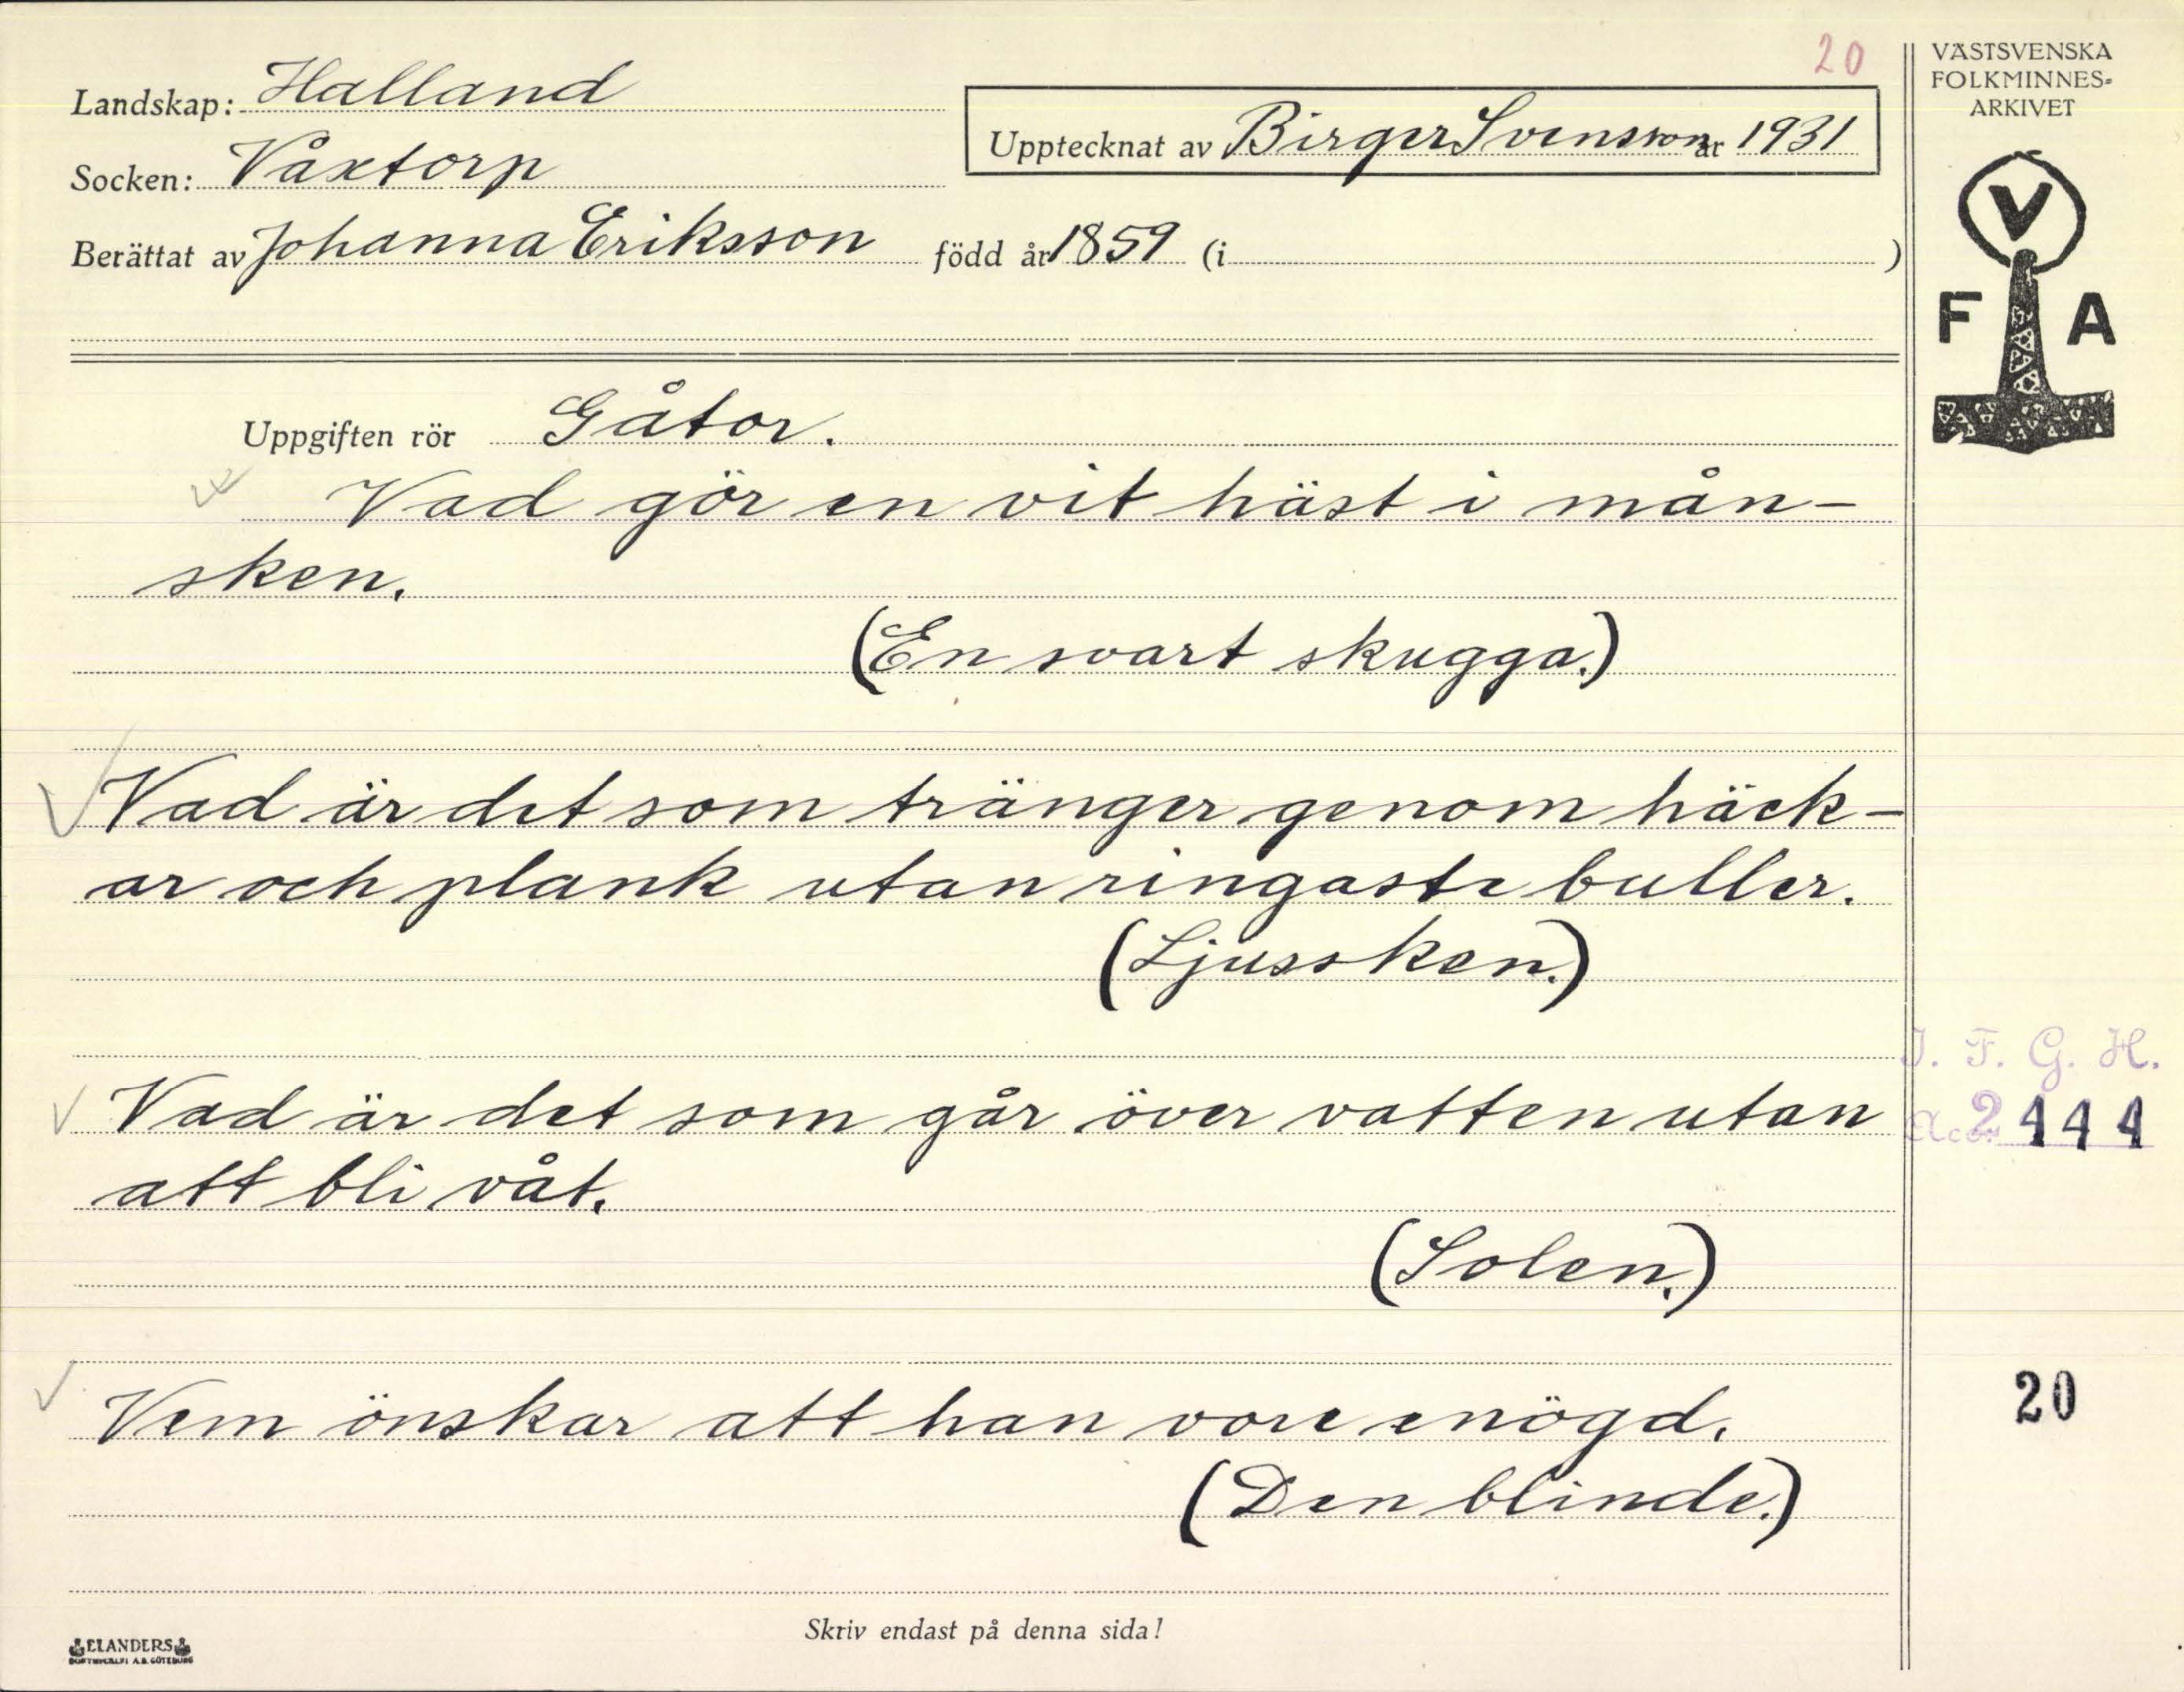 20
Landskap: Halland
Upptecknat av Birger Svensson år 1931
Socken: Våxtorp
Berättat av Johanna Eriksson född år 1859 (i )
VÄSTSVENSKA
FOLKMINNES-
ARKIVET
V
F A
Uppgiften rör Gåtor.
Vad gör en vit häst i mån-
sken.
(En svart skugga.)
Vad är det som tränger genom häck-
ar och plank utan ringaste buller.
(Ljussken.)
Vad är det som går över vatten utan
att bli våt.
(Solen.)
Vem önskar att han vore enögd.
(Den blinde.)
I. F. G. H.
Acc. 2444
20
Skriv endast på denna sida!
ELANDERS
GÖTEBORG